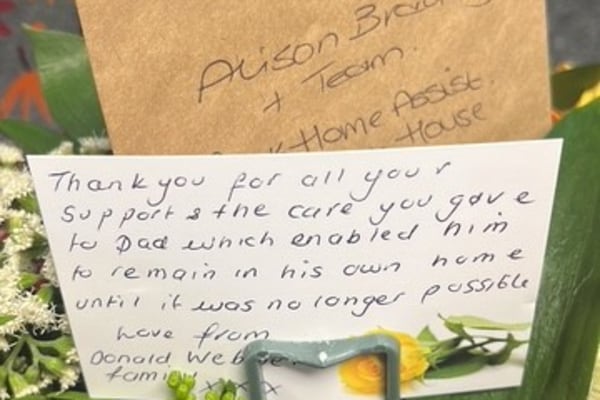 Alison
+ Team.
Home Assist.
House
Thank you for all your
support & the care you gave
to Dad which enabled him
to remain in his own home
until it was no longer possible
Love from
Donald
family xxxx